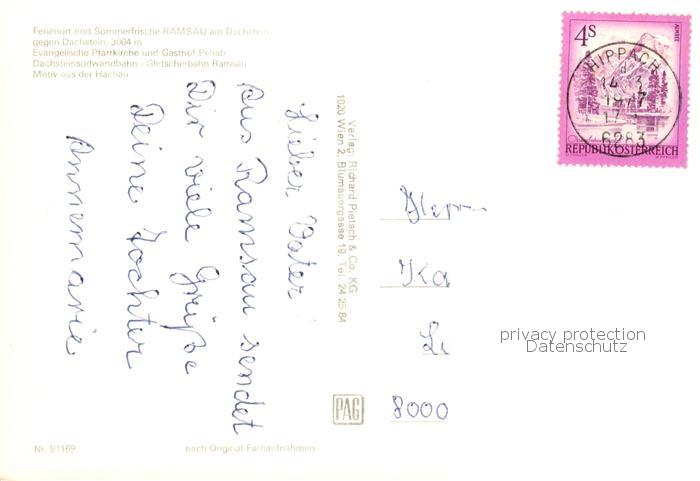 Ferienort und Sommerfrische RAMSAU am Dachstein
gegen Dachstein, 3004 m
Evangelische Pfarrkirche und Gasthof Pehab
Dachsteinsüdwandbahn - Gletscherbahn Ramsau
Motiv aus der Hachau
Lieber Vater!
Aus Ramsau sendet
Dir viele Grüße
Deine Tochter
Annemarie
Verlag: Richard Pietsch & Co. KG
1020 Wien 2, Blumauergasse 19, Tel. 24 25 84
4S
ALMSEE
HIPPACH
6283
REPUBLIK ÖSTERREICH
Herrn
Ka
8000
privacy protection
Datenschutz
PAG
Nr. 81169
nach Original-Farbaufnahmen